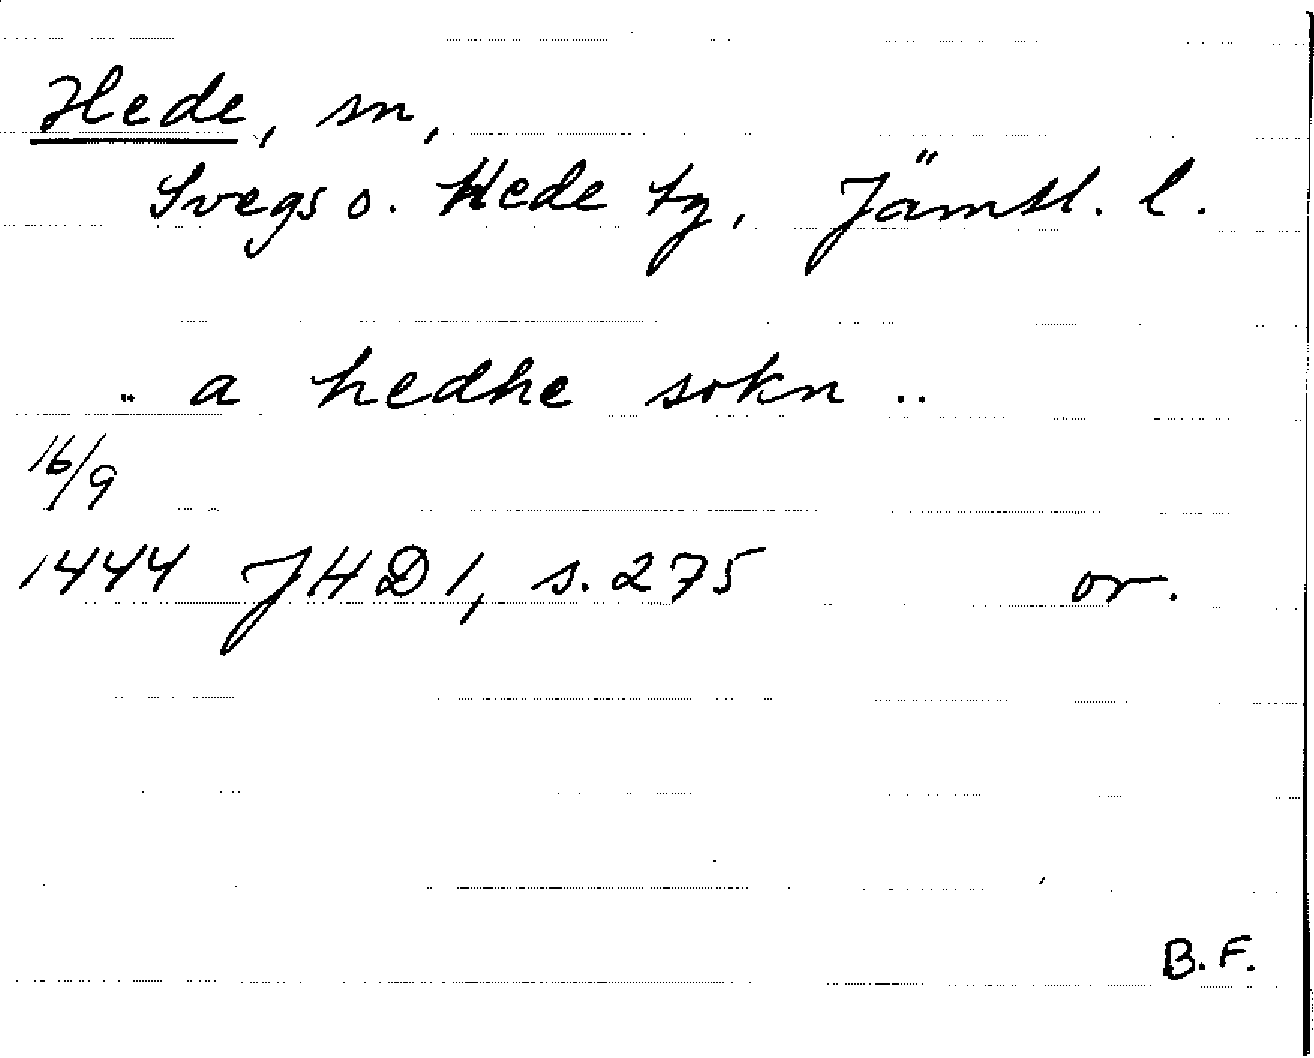 Hede, sn,
Svegs o. Hede tg, Jämtl. l.
.. a hedhe sokn ..
16/9
1444 JHD 1, s. 275 or.
B. F.